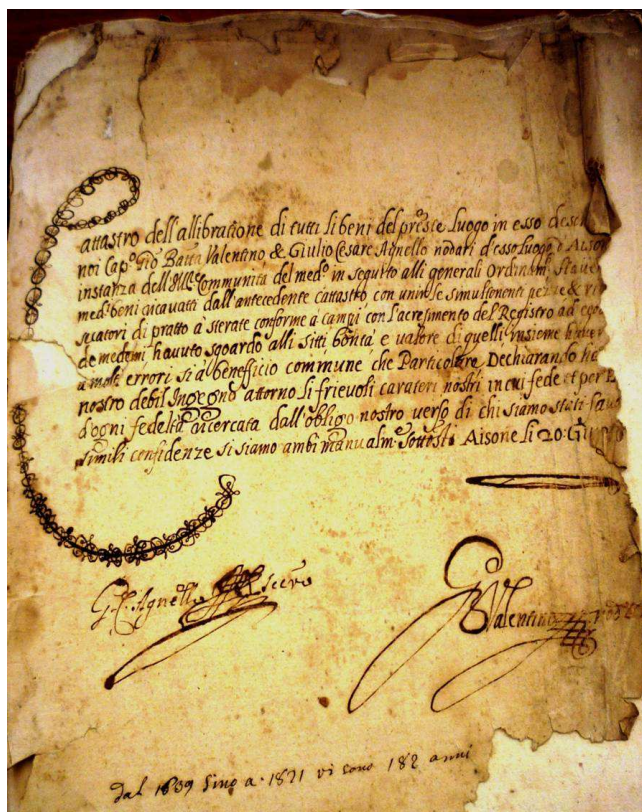 Cattastro dell'allibratione di tutti li beni del pr̃ete Luogo in esso descr
noi Cap.º Gio Batt.ª Valentino & Giulio Cesare Agnello nodari d'esso Luogo d'Aison
instanza dell'Ill.ª Communità del med.º in seguito alli generali Ordini
med.ⁱ beni ricavatti dall'antecedente cattastro con unir le simultenenti pezze &
sucatori di pratto a sterate conforme a campi con l'acresimento del Registro ad
de medemi havuto sguardo alli sitti bontà e valore di quelli insieme
a molti errori si a beneffìcio commune che Particolare Dechiarando
nostro debil Ingegno attorno li frievoli caratteri nostri in cui fede et per
d'ogni fedeltà ricercata dall'obligo nostro verso di chi siamo stati
simili confidenze si siamo ambi manualm.ᵉ sottosti Aisone li 20: Giu
G. C. Agnello Secr̃o
G B Valentino
dal 1639 sino a 1821 vi sono 182 anni